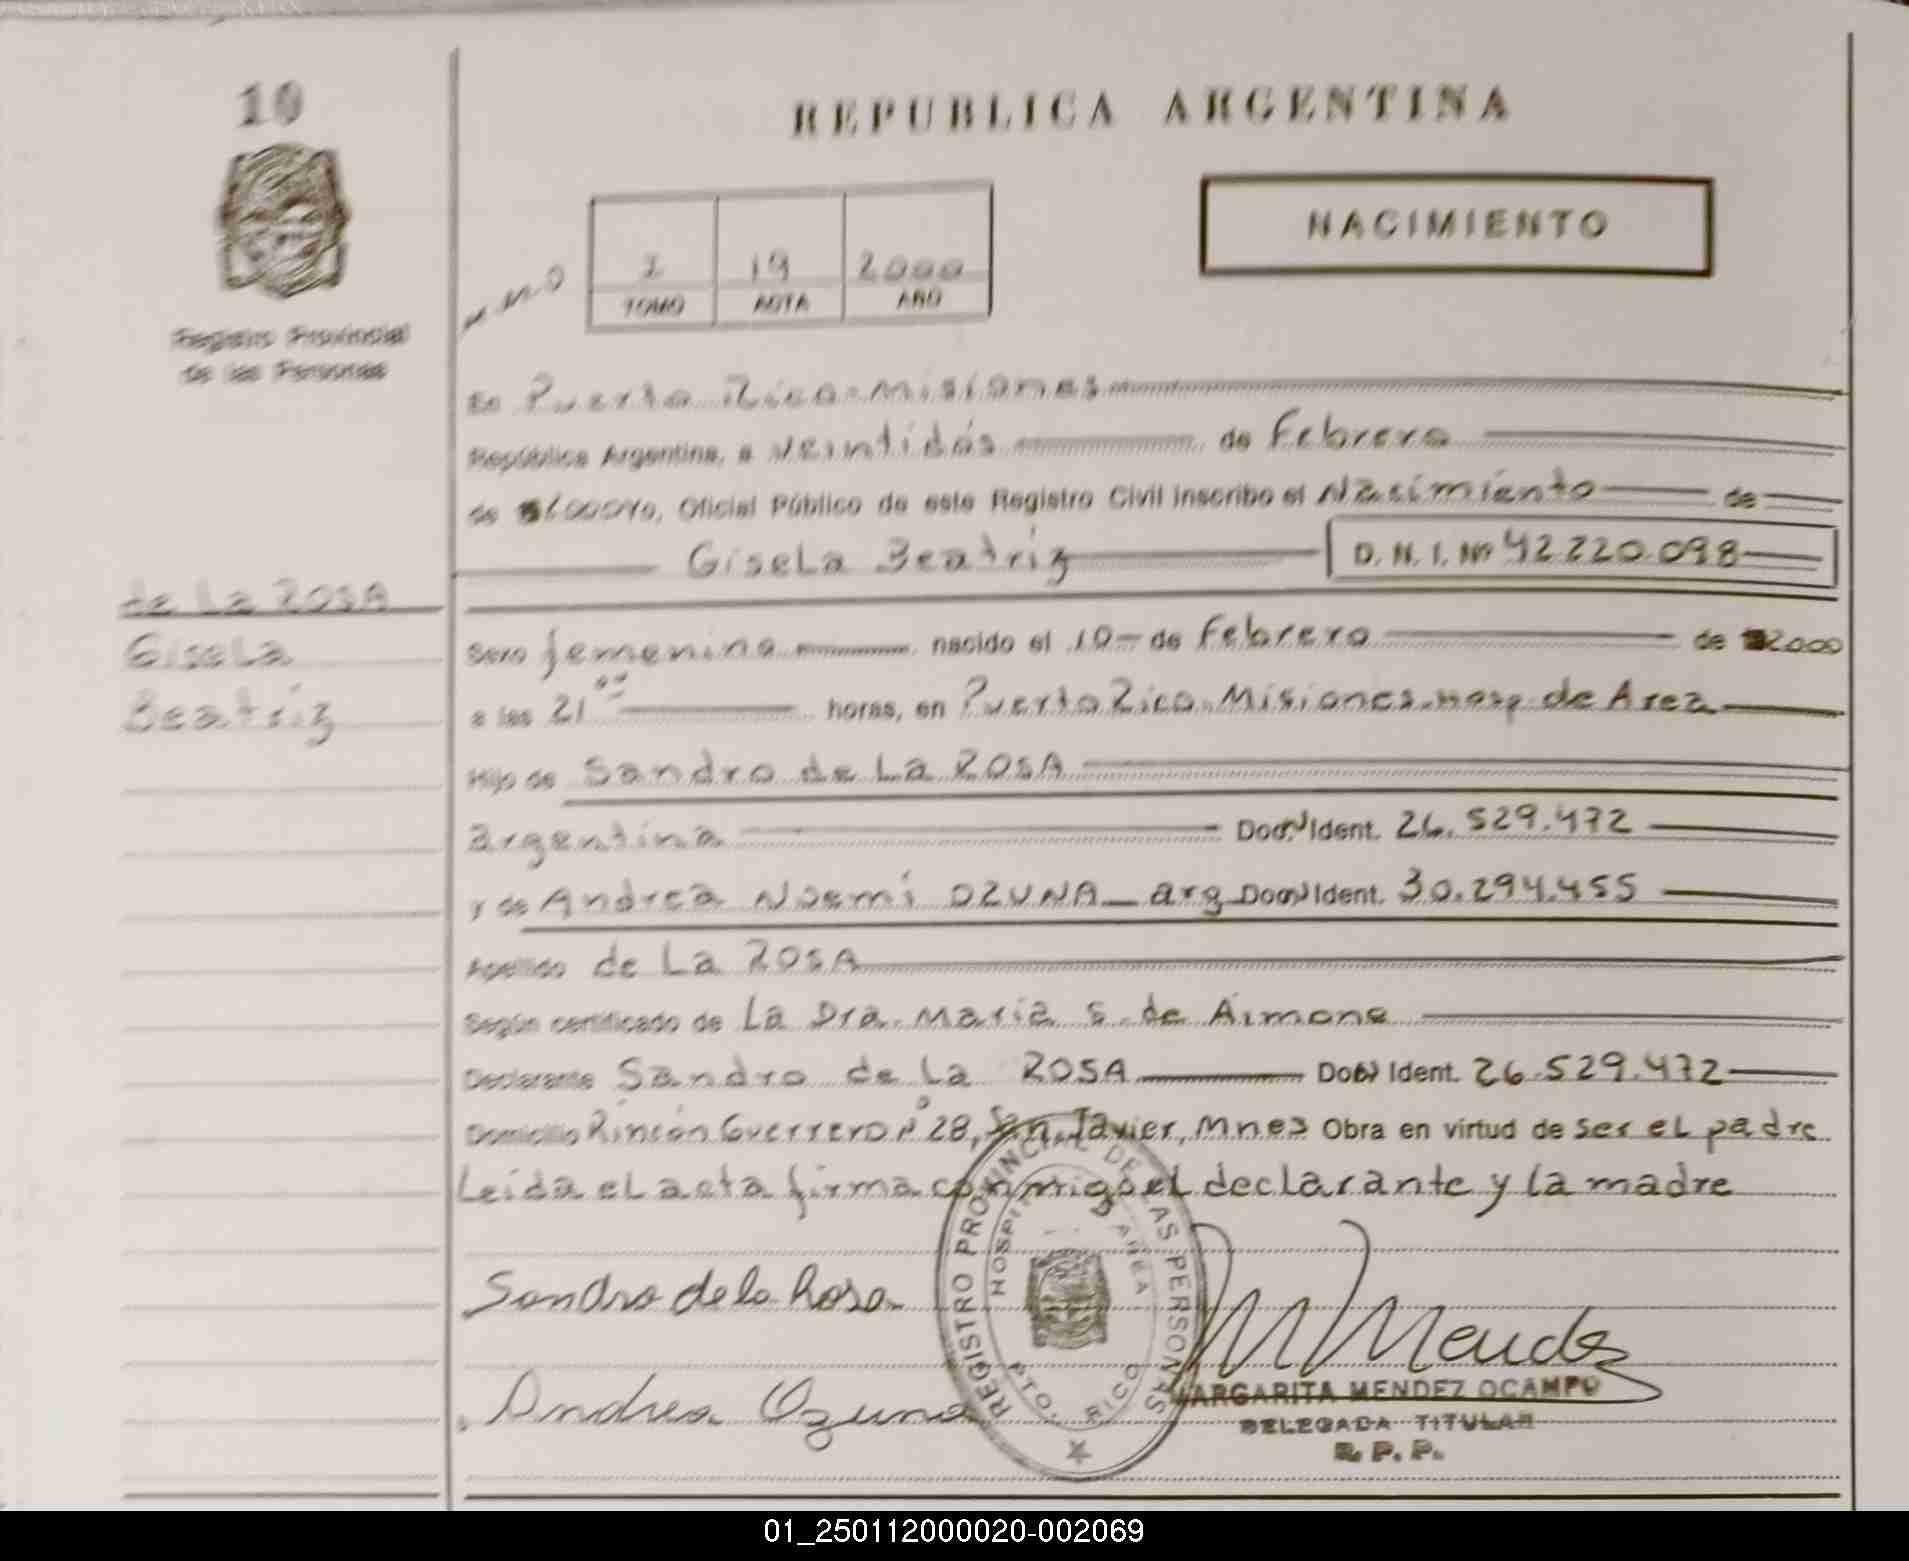 10
REPUBLICA ARGENTINA
NACIMIENTO
1 19 2000
TOMO ACTA AÑO
Registro Provincial
de las Personas
En Puerto Rico-Misiones
República Argentina, a veintidós de Febrero
de 2000, Oficial Público de este Registro Civil inscribo el Nacimiento de
Gisela Beatriz D.N.I. Nº 42.220.098
de La ROSA
Gisela
Beatriz
Sexo femenino nacido el 10 de Febrero de 2000
a las 21 horas, en Puerto Rico-Misiones-Hosp. de Area
Hijo de Sandro de La ROSA
argentina Doc. Ident. 26.529.472
y de Andrea Noemí OZUNA arg Doc. Ident. 30.294.455
Apellido de La ROSA
Según certificado de La Dra. María S. de Aimone
Declarante Sandro de La ROSA Doc. Ident. 26.529.472
Domicilio Rincón Guerrero Nº 28, San Javier, Mnes Obra en virtud de ser el padre
Leída el acta firma conmigo el declarante y la madre
Sandro de la Rosa
Andrea Ozuna
REGISTRO PROVINCIAL DE LAS PERSONAS
HOSPITAL AREA
PTO. RICO
M Mendez
MARGARITA MENDEZ OCAMPO
DELEGADA TITULAR
R.P.P.
01_250112000020-002069